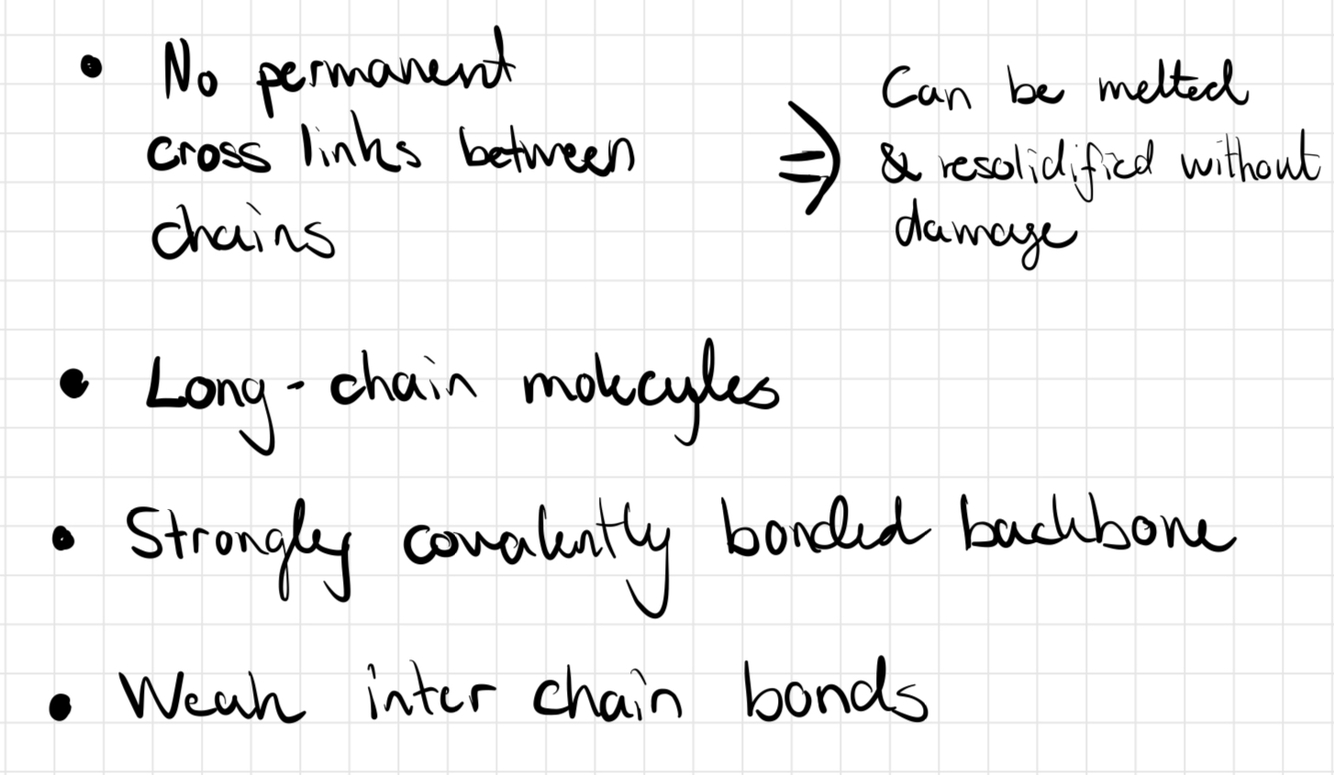 • No permanent
cross links between
chains
⇒ Can be melted
& resolidified without
damage
• Long-chain molecyles
• Strongley covalently bonded backbone
• Weak inter chain bonds